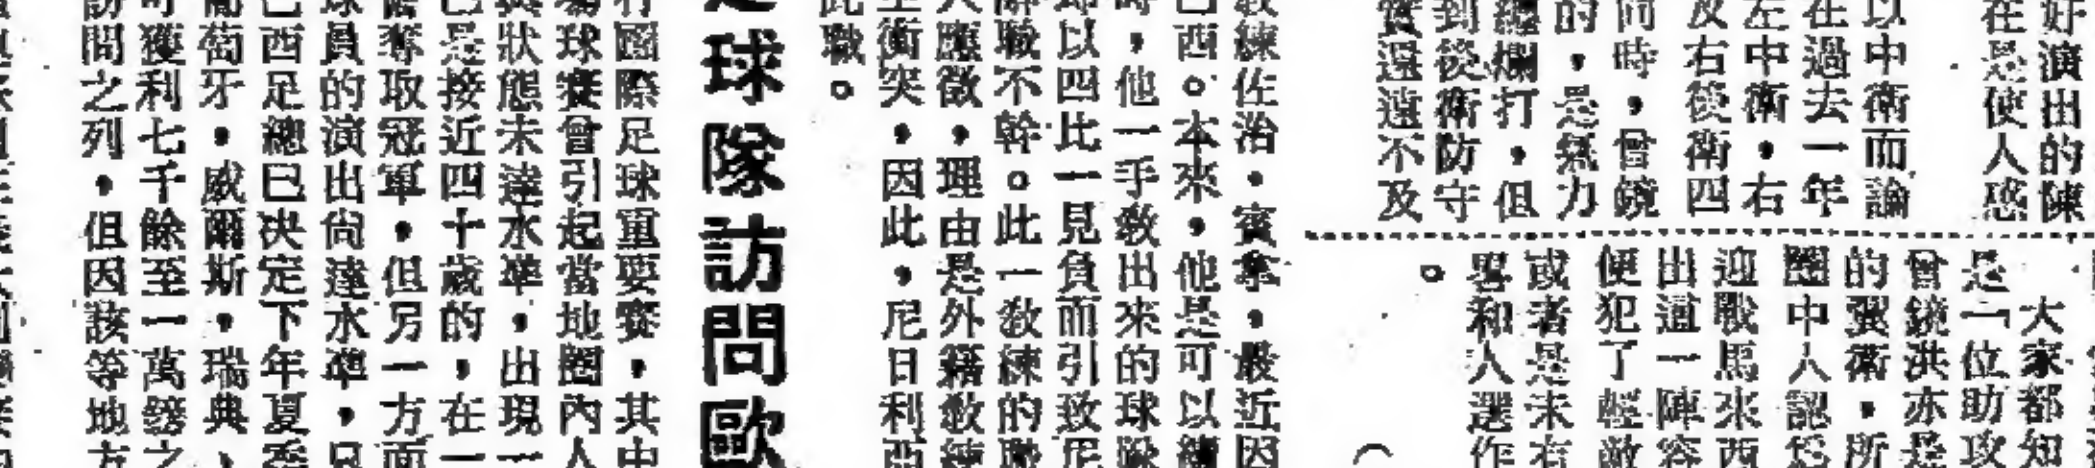 好演出的陳
在是使人惑
以中衛而論
在過去一年
左中衛，右
及右後衛四
同時，曾鏡
的，是無力
纏欄打，但
到後衛防守
實還遠不及
大家都知
是一位助攻
曾鏡洪亦是
的翼衛，所
圈中人認爲
迎戰馬來西
出這一陣容
便犯了輕敵
或者是未有
畧和人選作
。
教練佐治·賓拿，最近因
巴西。本來，他是可以續
時，他一手教出來的球隊
即以四比一見負而引致尼
辭職不幹。此一教練的職
人應徵，理由是外籍教練
生衝突，因此，尼日利亞
此職。
足球隊訪問歐
行國際足球重要賽，其中
場球賽曾引起當地圈內人
與狀態未達水準，出現一
已是接近四十歲的，在一
奪取冠軍，但另一方面
球員的演出尙達水準，只
巴西足總已決定下年夏季
葡萄牙，威爾斯，瑞典、
可獲利七千餘至一萬鎊之
訪問之列，但因該等地方